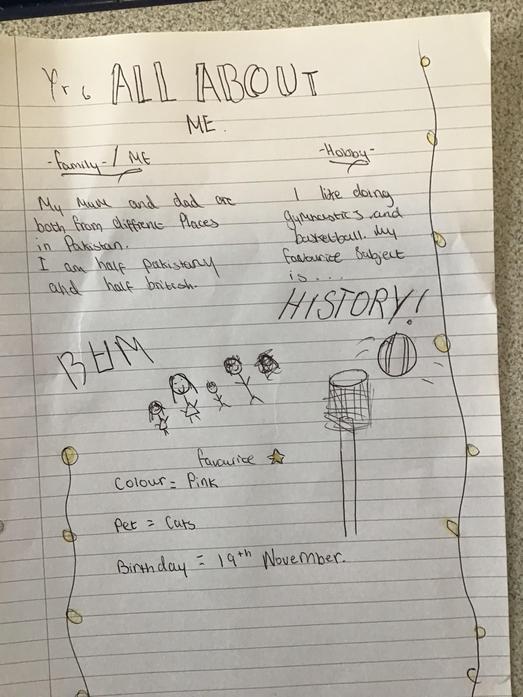 Yr 6 ALL ABOUT
ME.
-Family-/ ME
My mum and dad are
both from diffrent Places
in Pakistan.
I am half pakistany
and half british.
-Hobby-
I like doing
gymnastics and
basketball. My
favourice Subject
is ...
HISTORY!
favourice
Colour = Pink
Pet = Cats
Birthday = 19th November.